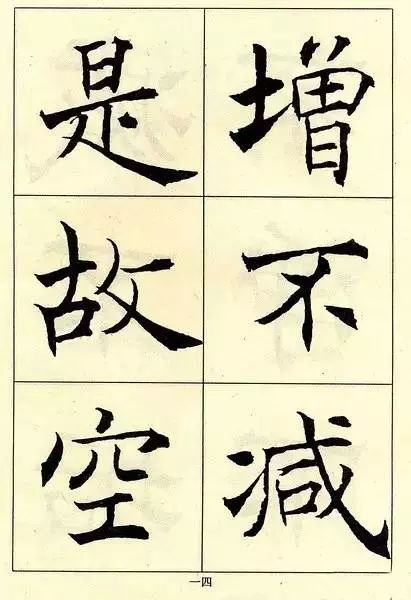 增不减
是故空
一四